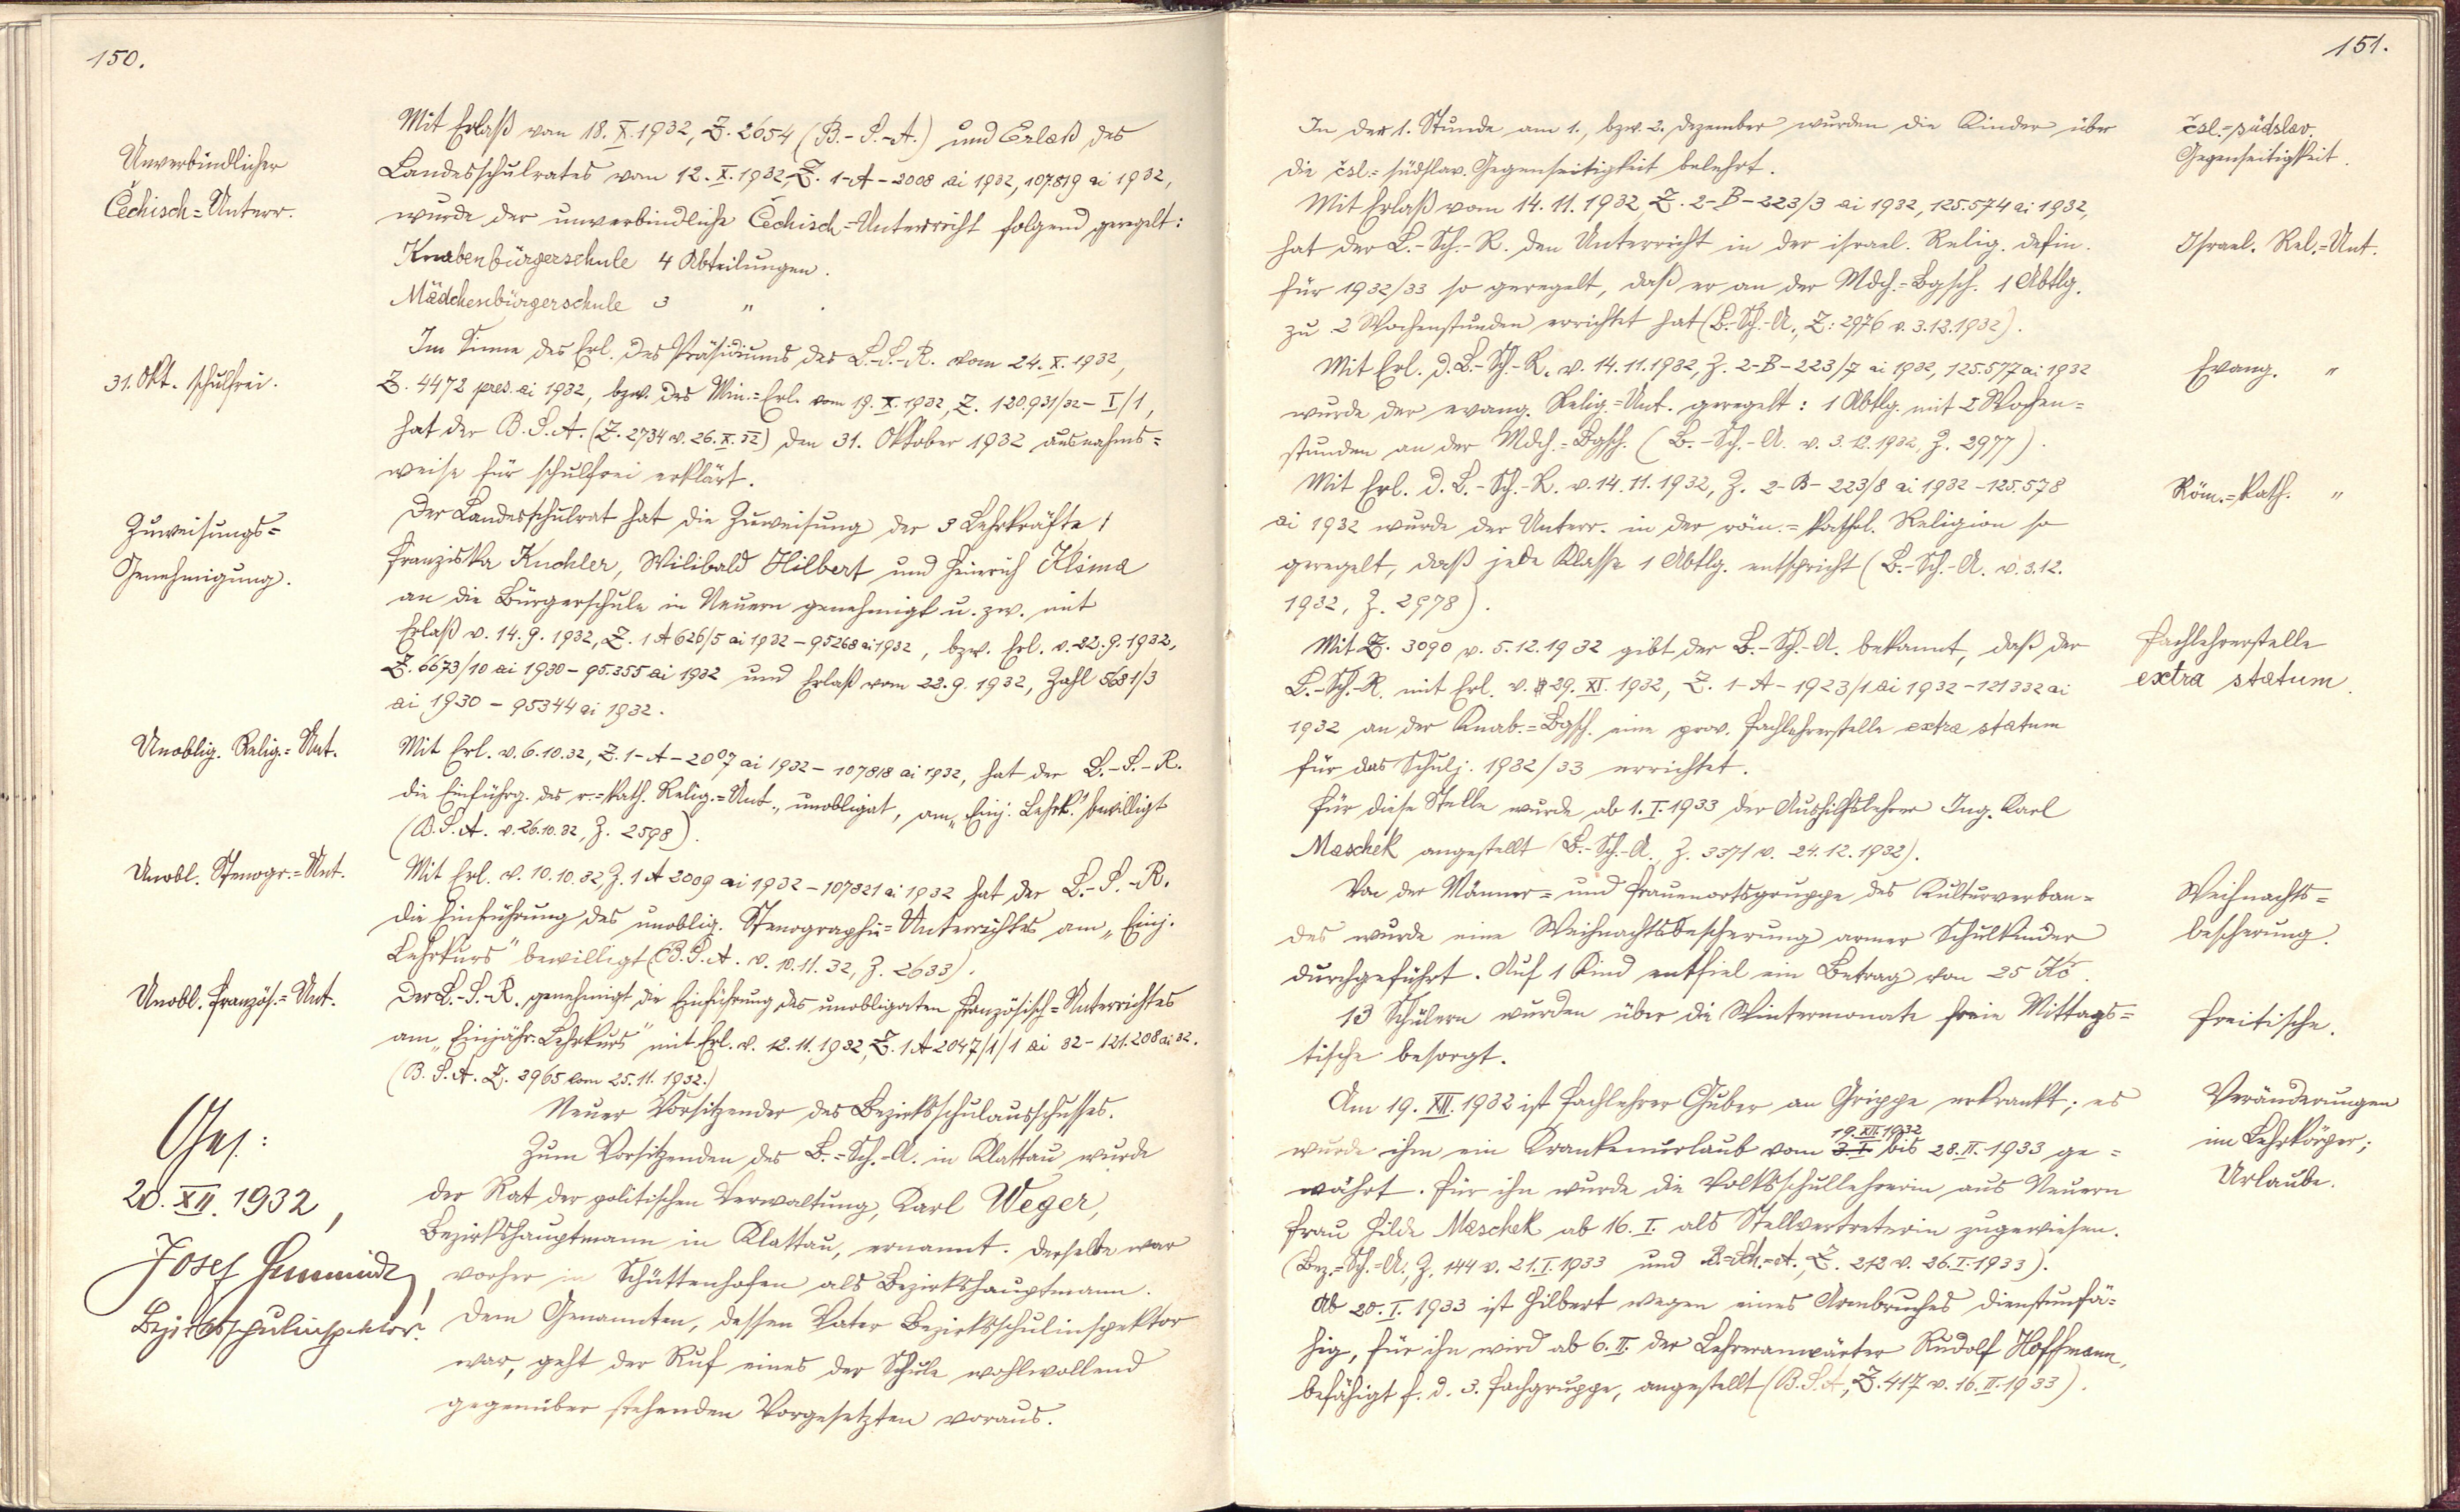 150.
Unverbindlicher
Čechisch=Unterr.
Mit Erlaß vom 18.X.1932, Z. 2654 (B.-S.-A.) und Erlaß des
Landesschulrates vom 12.X.1932, Z. 1-A-2008 ai 1932, 107.819 ai 1932,
wurde der unverbindliche Čechisch=Unterricht folgend geregelt:
Knabenbürgerschule 4 Abteilungen.
Mädchenbürgerschule 3 " .
31. Okt. schulfrei.
Im Sinne des Erl. des Präsidiums des L.-S.-R. vom 24.X.1932,
Z. 4472 pres. ai 1932, bzw. des Min.=Erl. vom 19.X.1932, Z. 120.931/32-I/1,
hat der B.S.A. (Z. 2734 v. 26.X.32) den 31. Oktober 1932 ausnahms=
weise für schulfrei erklärt.
Zuweisungs=
Genehmigung.
Der Landesschulrat hat die Zuweisung der 3 Lehrkräfte:
Franziska Kuchler, Wilibald Hilbert und Heinrich Klima
an die Bürgerschule in Neuern genehmigt u. zw. mit
Erlaß v. 14.9.1932, Z. 1 A 626/5 ai 1932 - 95268 ai 1932, bzw. Erl. v. 22.9.1932,
Z. 6673/10 ai 1930 - 95.355 ai 1932 und Erlaß vom 22.9.1932, Zahl 5681/3
ai 1930 - 95344 ai 1932.
Unoblig. Relig.=Unt.
Mit Erl. v. 6.10.32, Z. 1-A-2007 ai 1932 - 107818 ai 1932, hat der L.-S.-R.
die Einführg. des r.=kath. Relig.=Unt., unobligat, am „Einj. Lehrk." bewilligt
(B.S.A. v. 26.10.32, Z. 2598).
Unobl. Stenogr.=Unt.
Mit Erl. v. 10.10.32, Z. 1 A 2009 ai 1932 - 107821 ai 1932 hat der L.-S.-R.
die Einführung des unoblig. Stenographie=Unterrichtes am „Einj.
Lehrkurs" bewilligt (B.S.A. v. 10.11.32, Z. 2633).
Unobl. Französ.=Unt.
Der L.-S.-R. genehmigt die Einführung des unobligaten Französisch=Unterrichtes
am „Einjähr. Lehrkurs" mit Erl. v. 12.11.1932, Z. 1 A 2047/1/1 ai 32 - 121.208 ai 32.
(B.S.A. Z. 2965 vom 25.11.1932.)
Neuer Vorsitzender des Bezirksschulausschusses.
Zum Vorsitzenden des B.=Sch.-A. in Klattau wurde
der Rat der politischen Verwaltung, Karl Weger,
Bezirkshauptmann in Klattau, ernannt. Derselbe war
vorher in Schüttenhofen als Bezirkshauptmann.
Dem Genannten, dessen Vater Bezirksschulinspektor
war, geht der Ruf eines der Schule wohlwollend
gegenüber stehenden Vorgesetzten voraus.
Ges.:
20.XII.1932,
Josef
Bezirksschulinspektor.
151.
In der 1. Stunde am 1., bzw. 2. Dezember wurden die Kinder über
die čsl.=südslav. Gegenseitigkeit belehrt.
čsl.=südslav.
Gegenseitigkeit.
Mit Erlaß vom 14.11.1932 Z. 2-B-223/3 ai 1932, 125.574 ai 1932,
hat der L.-Sch.-R. den Unterricht in der israel. Relig. defin.
für 1932/33 so geregelt, daß er an der Mdch.=Bgsch. 1 Abtlg.
zu 2 Wochenstunden errichtet hat (B.-Sch.-A., Z: 2976 v. 3.12.1932).
Israel. Rel.=Unt.
Mit Erl. d. L.-Sch.-R. v. 14.11.1932, Z. 2-B-223/7 ai 1932, 125.577 ai 1932
wurde der evang. Relig.=Unt. geregelt: 1 Abtlg. mit 2 Wochen=
stunden an der Mdch.=Bgsch. (B.-Sch.-A. v. 3.12.1932, Z. 2977).
Evang. "
Mit Erl. d. L.-Sch.-R. v. 14.11.1932, Z. 2-B-223/8 ai 1932 - 125.578
ai 1932 wurde der Unterr. in der röm.=kathol. Religion so
geregelt, daß jede Klasse 1 Abtlg. entspricht (B.-Sch.-A. v. 3.12.
1932, Z. 2978).
Röm.=kath. "
Mit Z. 3090 v. 5.12.1932 gibt der B.-Sch.-A. bekannt, daß der
L.-Sch.-R. mit Erl. v. 29.XI.1932, Z. 1-A-1923/1 ai 1932 - 121332 ai
1932 an der Knab.=Bgsch. eine prov. Fachlehrerstelle extra statum
für das Schulj. 1932/33 errichtet.
Fachlehrerstelle
extra statum.
Für diese Stelle wurde ab 1.I.1933 der Aushilfslehrer Ing. Karl
Maschek angestellt (B.-Sch.-A., Z. 3371 v. 24.12.1932).
Von der Männer= und Frauenortsgruppe des Kulturverban=
des wurde eine Weihnachtsbescherung armer Schulkinder
durchgeführt. Auf 1 Kind entfiel ein Betrag von 25 Kč.
Weihnachts=
bescherung.
13 Schülern wurden über die Wintermonate freie Mittags=
tische besorgt.
Freitische.
Am 19.XII.1932 ist Fachlehrer Huber an Grippe erkrankt; es
19.XII.1932
wurde ihm ein Krankenurlaub vom 3.I. bis 28.II.1933 ge=
währt. Für ihn wurde die Volksschullehrerin aus Neuern
Frau Hilde Maschek ab 16.I. als Stellvertreterin zugewiesen.
(Bez.=Sch.=A., Z. 144 v. 21.I.1933 und B.=Sch.=A., Z. 212 v. 26.I.1933).
Veränderungen
im Lehrkörper;
Urlaube.
Ab 20.I.1933 ist Hilbert wegen eines Armbruches dienstunfä=
hig, für ihn wird ab 6.II. der Lehreranwärter Rudolf Hoffmann,
befähigt f. d. 3. Fachgruppe, angestellt (B.S.A., Z. 417 v. 16.II.1933).